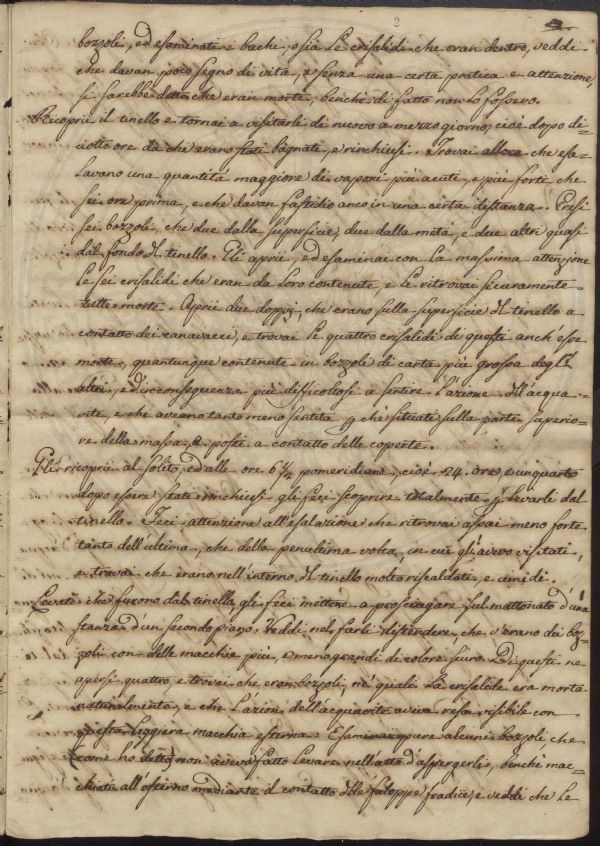 2
bozzoli, ed esaminati i bachi, o sia le crisalidi che eran dentro, veddi
che davan poco segno di vita, e senza una certa pratica e attenzione,
si sarebbe detto che eran morte, benchè di fatto non lo fossero.
Ricoprii il tinello e tornai a visitarli di nuovo a mezzo giorno, cioè dopo di-
ciotto ore da che erano stati bagnati, e rinchiusi. Trovai allora che esa-
lavano una quantità maggiore di vapori più acuti, e più forti che
sei ore prima, e che davan fastidio anco in una certa distanza. Presi
sei bozzoli, che due dalla superficie, due dalla metà, e due altri quasi
dal fondo del tinello. Gli aprii, ed esaminai con la massima attenzione
le sei crisalidi che eran da loro contenute, e le ritrovai sicuramente
tutte morte. Aprii due doppj, che erano sulla superficie del tinello a
contatto dei canavacci, e trovai le quattro crisalidi di questi anch'esse
morte, quantunque contenute in bozzoli di carta più grossa degl'
altri, ed in conseguenza più difficoltosi a sentire l'azione dell'acqua-
vite, e che aveano tanto meno sentita situati sulla parte superio-
re della massa, e posti a contatto delle coperte.
Gli ricoprii al solito, ed alle ore 6 1/2 pomeridiane, cioè 24 ore, e un quarto
dopo essere stati rinchiusi gli feci scoprire totalmente p levarli dal
tinello. Feci attenzione all'esalazione che ritrovai assai meno forte
tanto dell'ultima, che della penultima volta, in cui gli avevo visitati,
e trovai che erano nell'interno del tinello molto riscaldati, e umidi.
Levati che furono dal tinello, gli feci mettere a prosciugare sul mattonato d'una
stanza d'un secondo piano. Veddi nel farli distendere, che v'erano dei boz-
zoli con delle macchie più, o meno grandi di colore scuro. Di questi ne
apersi quattro e trovai che eran bozzoli, nè quali la crisalide era morta
naturalmente, e che l'azione dell'acquavite aveva resa visibile con
questa leggiera macchia esterna. Esaminai pure alcuni bozzoli, che
(come ho detto) non avevo fatto levare nell'atto d'aspergerli, benchè mac-
chiati all'esterno mediante il contatto delle faloppe fradicie, e veddi che le